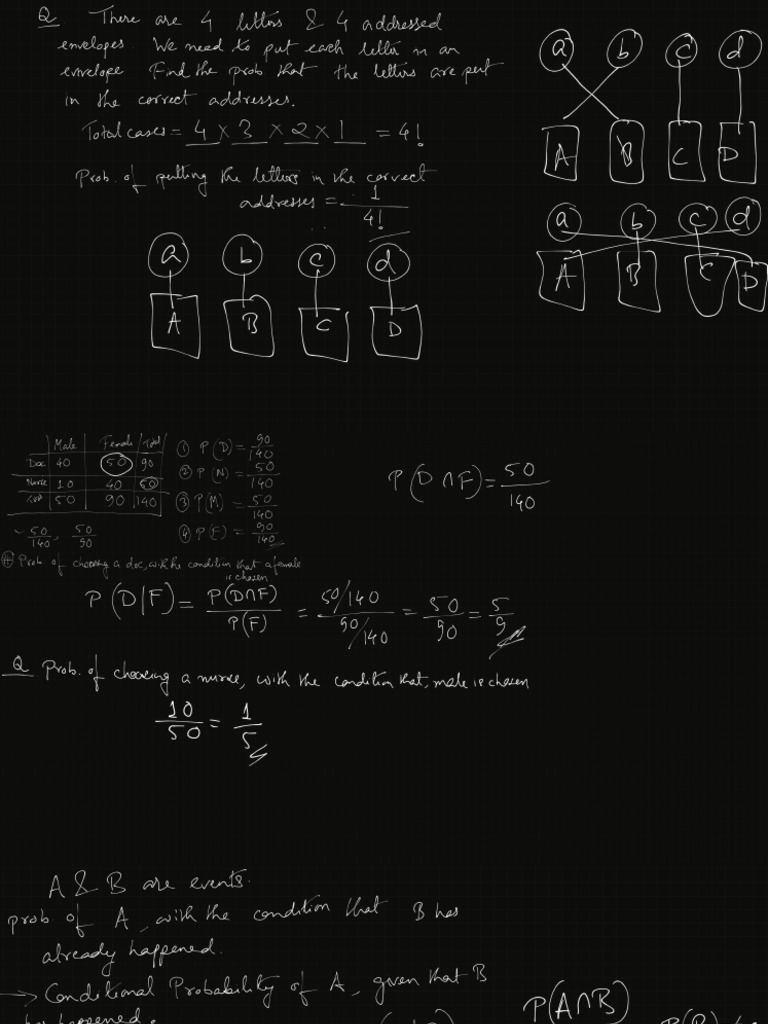 Q There are 4 letters & 4 addressed
envelopes. We need to put each letter in an
envelope Find the prob that the letters are put
in the correct addresses.
Total cases = 4 × 3 × 2 × 1 = 4!
Prob. of putting the letters in the correct
addresses = 1/4!
a b c d
A B C D
a b c d
A B C D
a b c d
A B C D
Male Female Total
Doc 40 50 90
Nurse 10 40 50
50 90 140
~ 50/140, 50/90
① P(D) = 90/140
② P(N) = 50/140
③ P(M) = 50/140
④ P(F) = 90/140
P(D∩F) = 50/140
Prob. of choosing a doc, with the condition that a female
is chosen
P(D|F) = P(D∩F)/P(F) = 50/140 / 90/140 = 50/90 = 5/9
Q Prob. of choosing a nurse, with the condition that, male is chosen
10/50 = 1/5
A & B are events.
prob. of A, with the condition that B has
already happened.
→ Conditional Probability of A, given that B
happened.
P(A∩B)